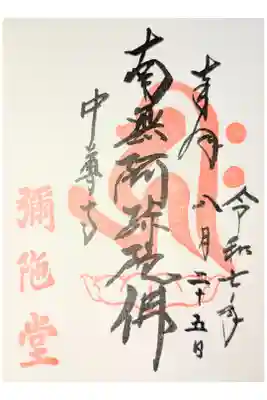 令和七年
八月二十五日
奉拝
南無阿弥陀佛
中尊寺
彌陁堂